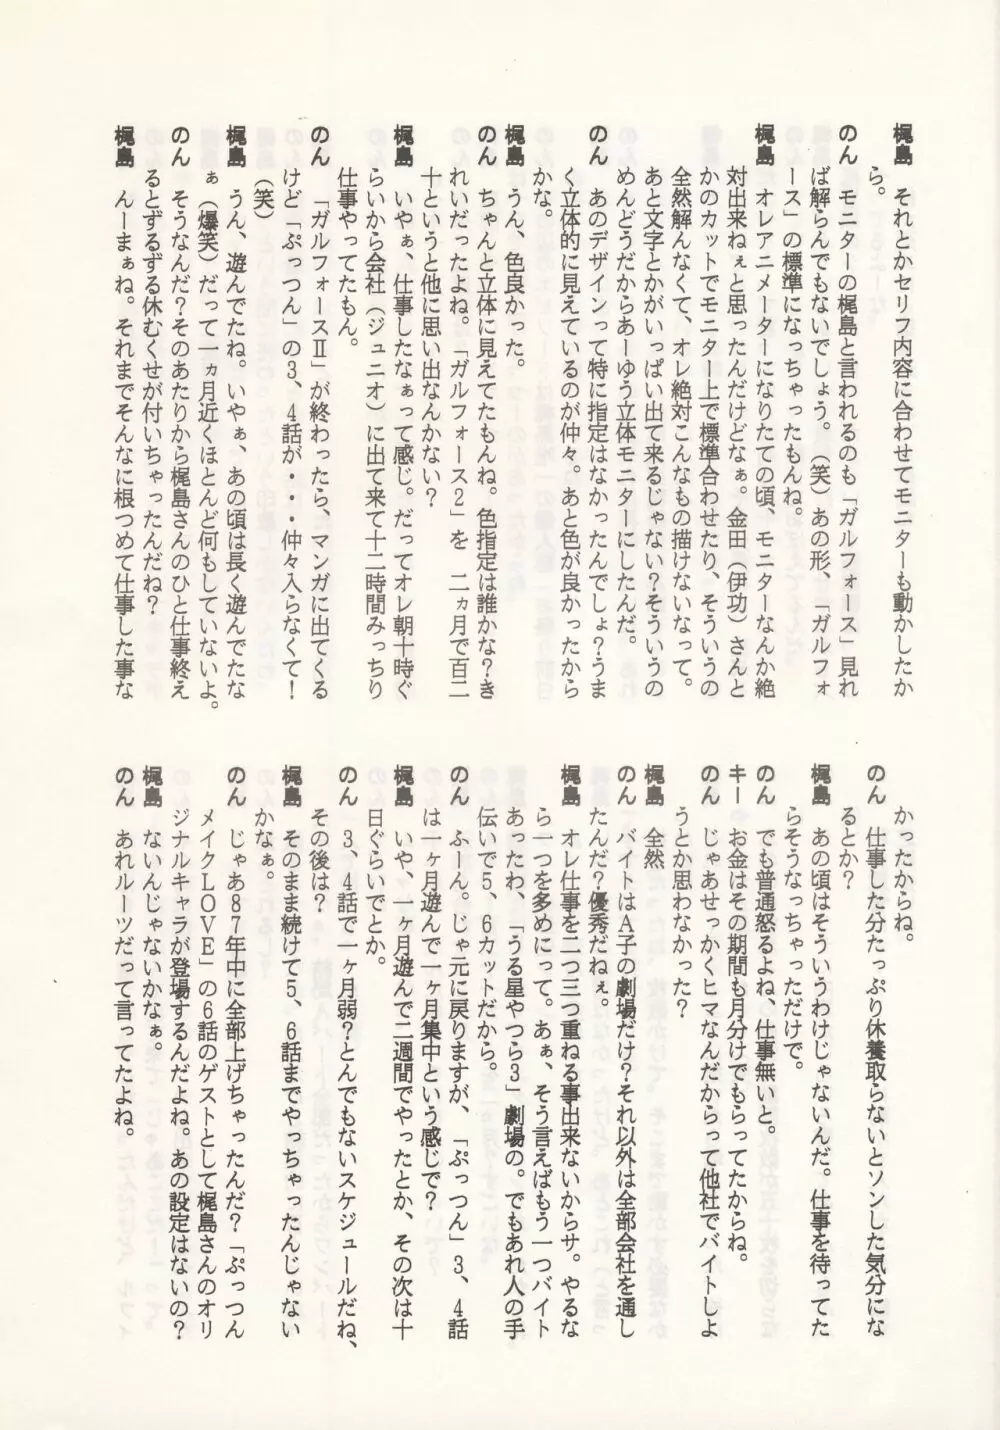 梶島　それとかセリフ内容に合わせてモニターも動かしたか
ら。
のん　モニターの梶島と言われるのも「ガルフォース」見れ
ば解らんでもないでしょう。（笑）あの形、「ガルフォ
ース」の標準になっちゃったもんね。
梶島　オレアニメーターになりたての頃、モニターなんか絶
対出来ねぇと思ったんだけどなぁ。金田（伊功）さんと
かのカットでモニター上で標準合わせたり、そういうの
全然解んなくて、オレ絶対こんなもの描けないなって。
あと文字とかがいっぱい出て来るじゃない？そういうの
めんどうだからあーゆう立体モニターにしたんだ。
のん　あのデザインって特に指定はなかったんでしょ？うま
く立体的に見えているのが仲々。あと色が良かったから
かな。
梶島　うん、色良かった。
のん　ちゃんと立体に見えてたもんね。色指定は誰かな？き
れいだったよね。「ガルフォース２」を　二ヵ月で百二
十というと他に思い出なんかない？
梶島　いやぁ、仕事したなぁって感じ。だってオレ朝十時ぐ
らいから会社（ジュニオ）に出て来て十二時間みっちり
仕事やってたもん。
のん　「ガルフォースⅡ」が終わったら、マンガに出てくる
けど「ぷっつん」の３、４話が・・・仲々入らなくて！
（笑）
梶島　うん、遊んでたね。いやぁ、あの頃は長く遊んでたな
ぁ（爆笑）だって一ヵ月近くほとんど何もしていないよ。
のん　そうなんだ？そのあたりから梶島さんのひと仕事終え
るとずるずる休むくせが付いちゃったんだね？
梶島　んーまぁね。それまでそんなに根つめて仕事した事な
かったからね。
のん　仕事した分たっぷり休養取らないとソンした気分にな
るとか？
梶島　あの頃はそういうわけじゃないんだ。仕事を待ってた
らそうなっちゃっただけで。
のん　でも普通怒るよね、仕事無いと。
キー　お金はその期間も月分けでもらってたからね。
のん　じゃあせっかくヒマなんだからって他社でバイトしよ
うとか思わなかった？
梶島　全然
のん　バイトはＡ子の劇場だけ？それ以外は全部会社を通し
たんだ？優秀だねぇ。
梶島　オレ仕事を二つ三つ重ねる事出来ないからサ。やるな
ら一つを多めにって。あぁ、そう言えばもう一つバイト
あったわ、「うる星やつら３」劇場の。でもあれ人の手
伝いで５、６カットだから。
のん　ふーん。じゃ元に戻りますが、「ぷっつん」３、４話
は一ヶ月遊んで一ヶ月集中という感じで？
梶島　いや、一ヶ月遊んで二週間でやったとか、その次は十
日ぐらいでとか。
のん　３、４話で一ヶ月弱？とんでもないスケジュールだね、
その後は？
梶島　そのまま続けて５、６話までやっちゃったんじゃない
かなぁ。
のん　じゃあ８７年中に全部上げちゃったんだ？「ぷっつん
メイクＬＯＶＥ」の６話のゲストとして梶島さんのオリ
ジナルキャラが登場するんだよね。あの設定はないの？
梶島　ないんじゃないかなぁ。
のん　あれルーツだって言ってたよね。